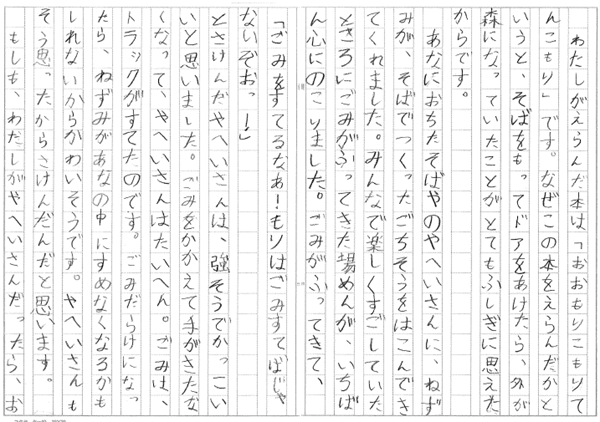 わたしがえらんだ本は「おおもりこもりて
んこもり」です。なぜこの本をえらんだかと
いうと、そばをもってドアをあけたら、外が
森になっていたことがとてもふしぎに思えた
からです。
あなにおちたそばやのやへいさんに、ねず
みが、そばでつくったごちそうをはこんでき
てくれました。みんなで楽しくすごしていた
ところにごみがふってきた場めんが、いちば
ん心にのこりました。ごみがふってきて、
「ごみをすてるなぁ!もりはごみすてばじゃ
ないぞおっー!」
とさけんだやへいさんは、強そうでかっこい
いと思いました。ごみをかかえて手がきたな
くなって、やへいさんはたいへん。ごみは、
トラックがすてたのです。ごみだらけになっ
たら、ねずみがあなの中にすめなくなるかも
しれないからかわいそうです。やへいさんも
そう思ったからさけんだんだと思います。
もしも、わたしがやへいさんだったら、お